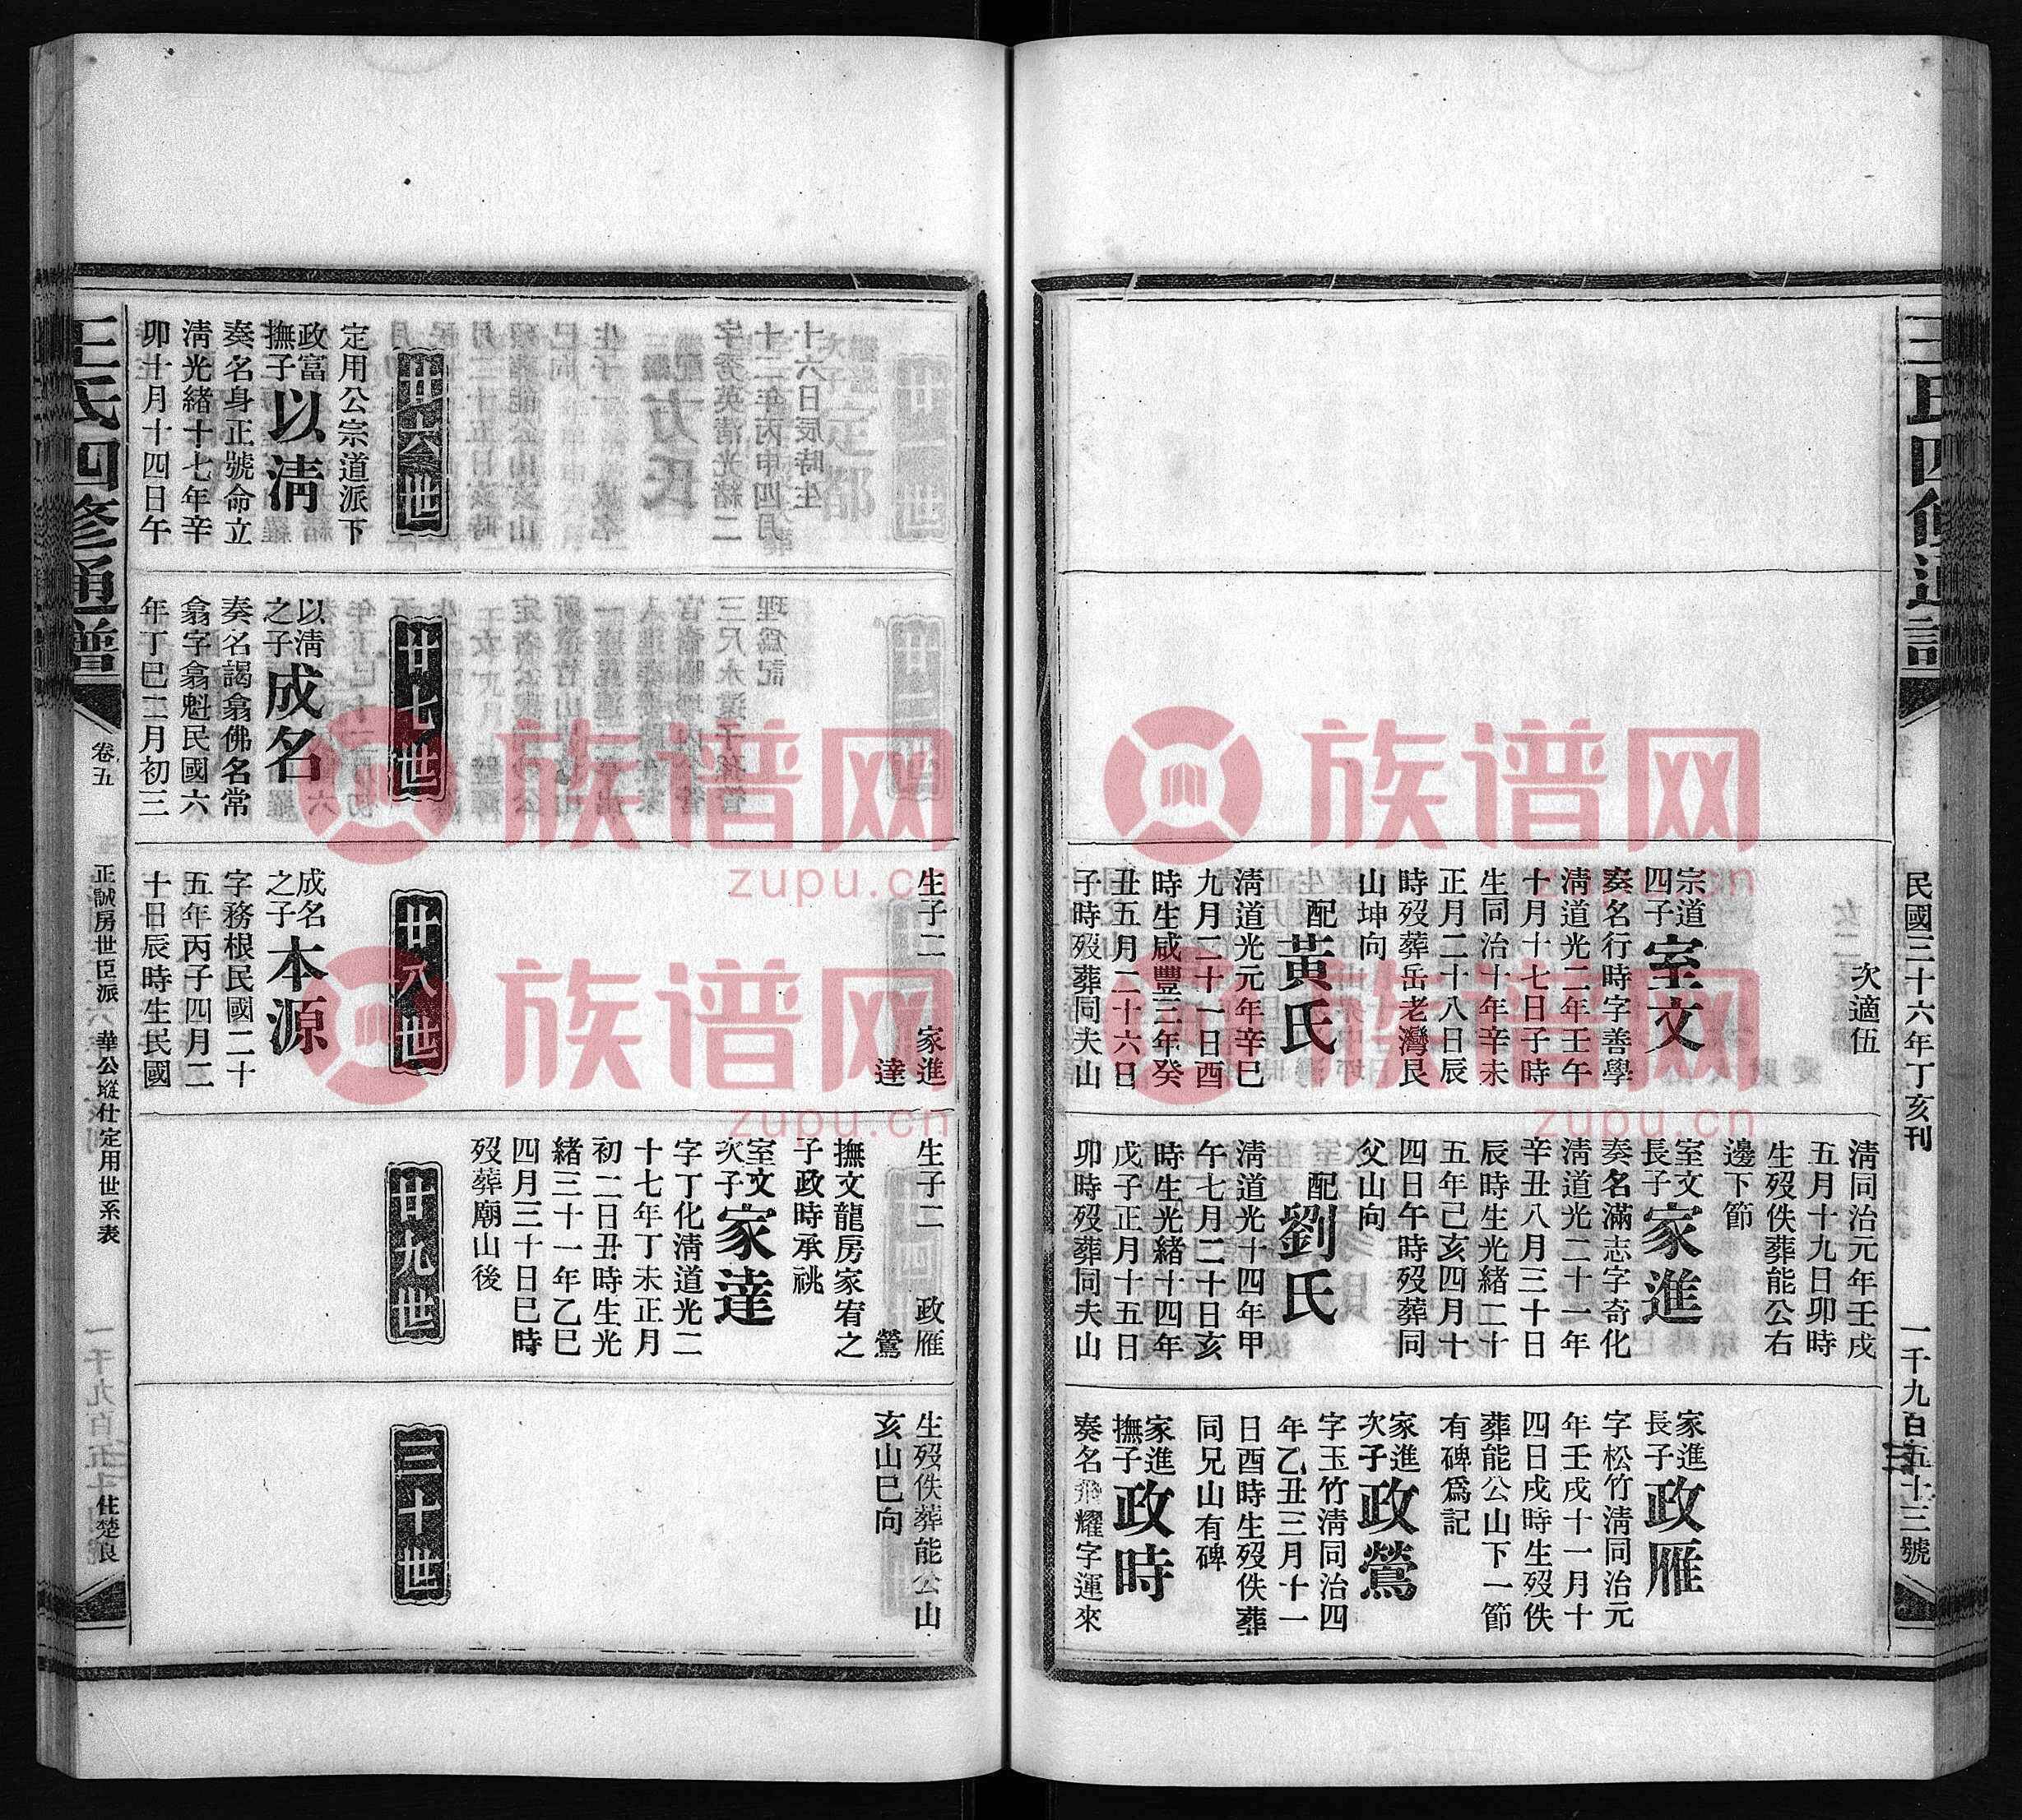 王氏四修通譜
民國三十六年丁亥刊
一千九百五十三號
次適伍
宗道四子室文
奏名行時字善學
清道光二年壬午
十月十七日子時
生同治十年辛未
正月二十八日辰
時歿葬岳老灣艮
山坤向
配黃氏
清道光元年辛巳
九月二十一日酉
時生咸豐三年癸
丑五月二十六日
子時歿葬同夫山
清同治元年壬戌
五月十九日卯時
生歿佚葬能公右
邊下節
室文長子家進
奏名滿志字奇化
清道光二十一年
辛丑八月三十日
辰時生光緒二十
五年己亥四月十
四日午時歿葬同
父山向
配劉氏
清道光十四年甲
午七月二十日亥
時生光緒十四年
戊子正月十五日
卯時歿葬同夫山
家進長子政雁
字松竹清同治元
年壬戌十一月十
四日戌時生歿佚
葬能公山下一節
有碑為記
家進次子政鶯
字玉竹清同治四
年乙丑三月十一
日酉時生歿佚葬
同兄山有碑
家進撫子政時
奏名飛耀字運來
十六日辰時生
十二年丙申四月
字秀英清光緒二
廿六世
定用公宗道派下
政富撫子以清
奏名身正號命立
清光緒十七年辛
卯十月十四日午
三尺永遠子孫管
理為記
廿七世
以清之子成名
奏名謁翕佛名常
翕字翕魁民國六
年丁巳二月初三
生子二 家進
達
廿八世
成名之子本源
字務根民國二十
五年丙子四月二
十日辰時生民國
生子二 政雁
鶯
撫文龍房家宥之
子政時承祧
室文次子家達
字丁化清道光二
十七年丁未正月
初二日丑時生光
緒三十一年乙巳
四月三十日巳時
歿葬廟山後
廿九世
生歿佚葬能公山
亥山巳向
三十世
王氏四修通譜
卷五
正誠房世臣派
華公縱仕定用世系表
住楚良
族谱网
zupu.cn
族谱网
zupu.cn
族谱网
zupu.cn
族谱网
zupu.cn